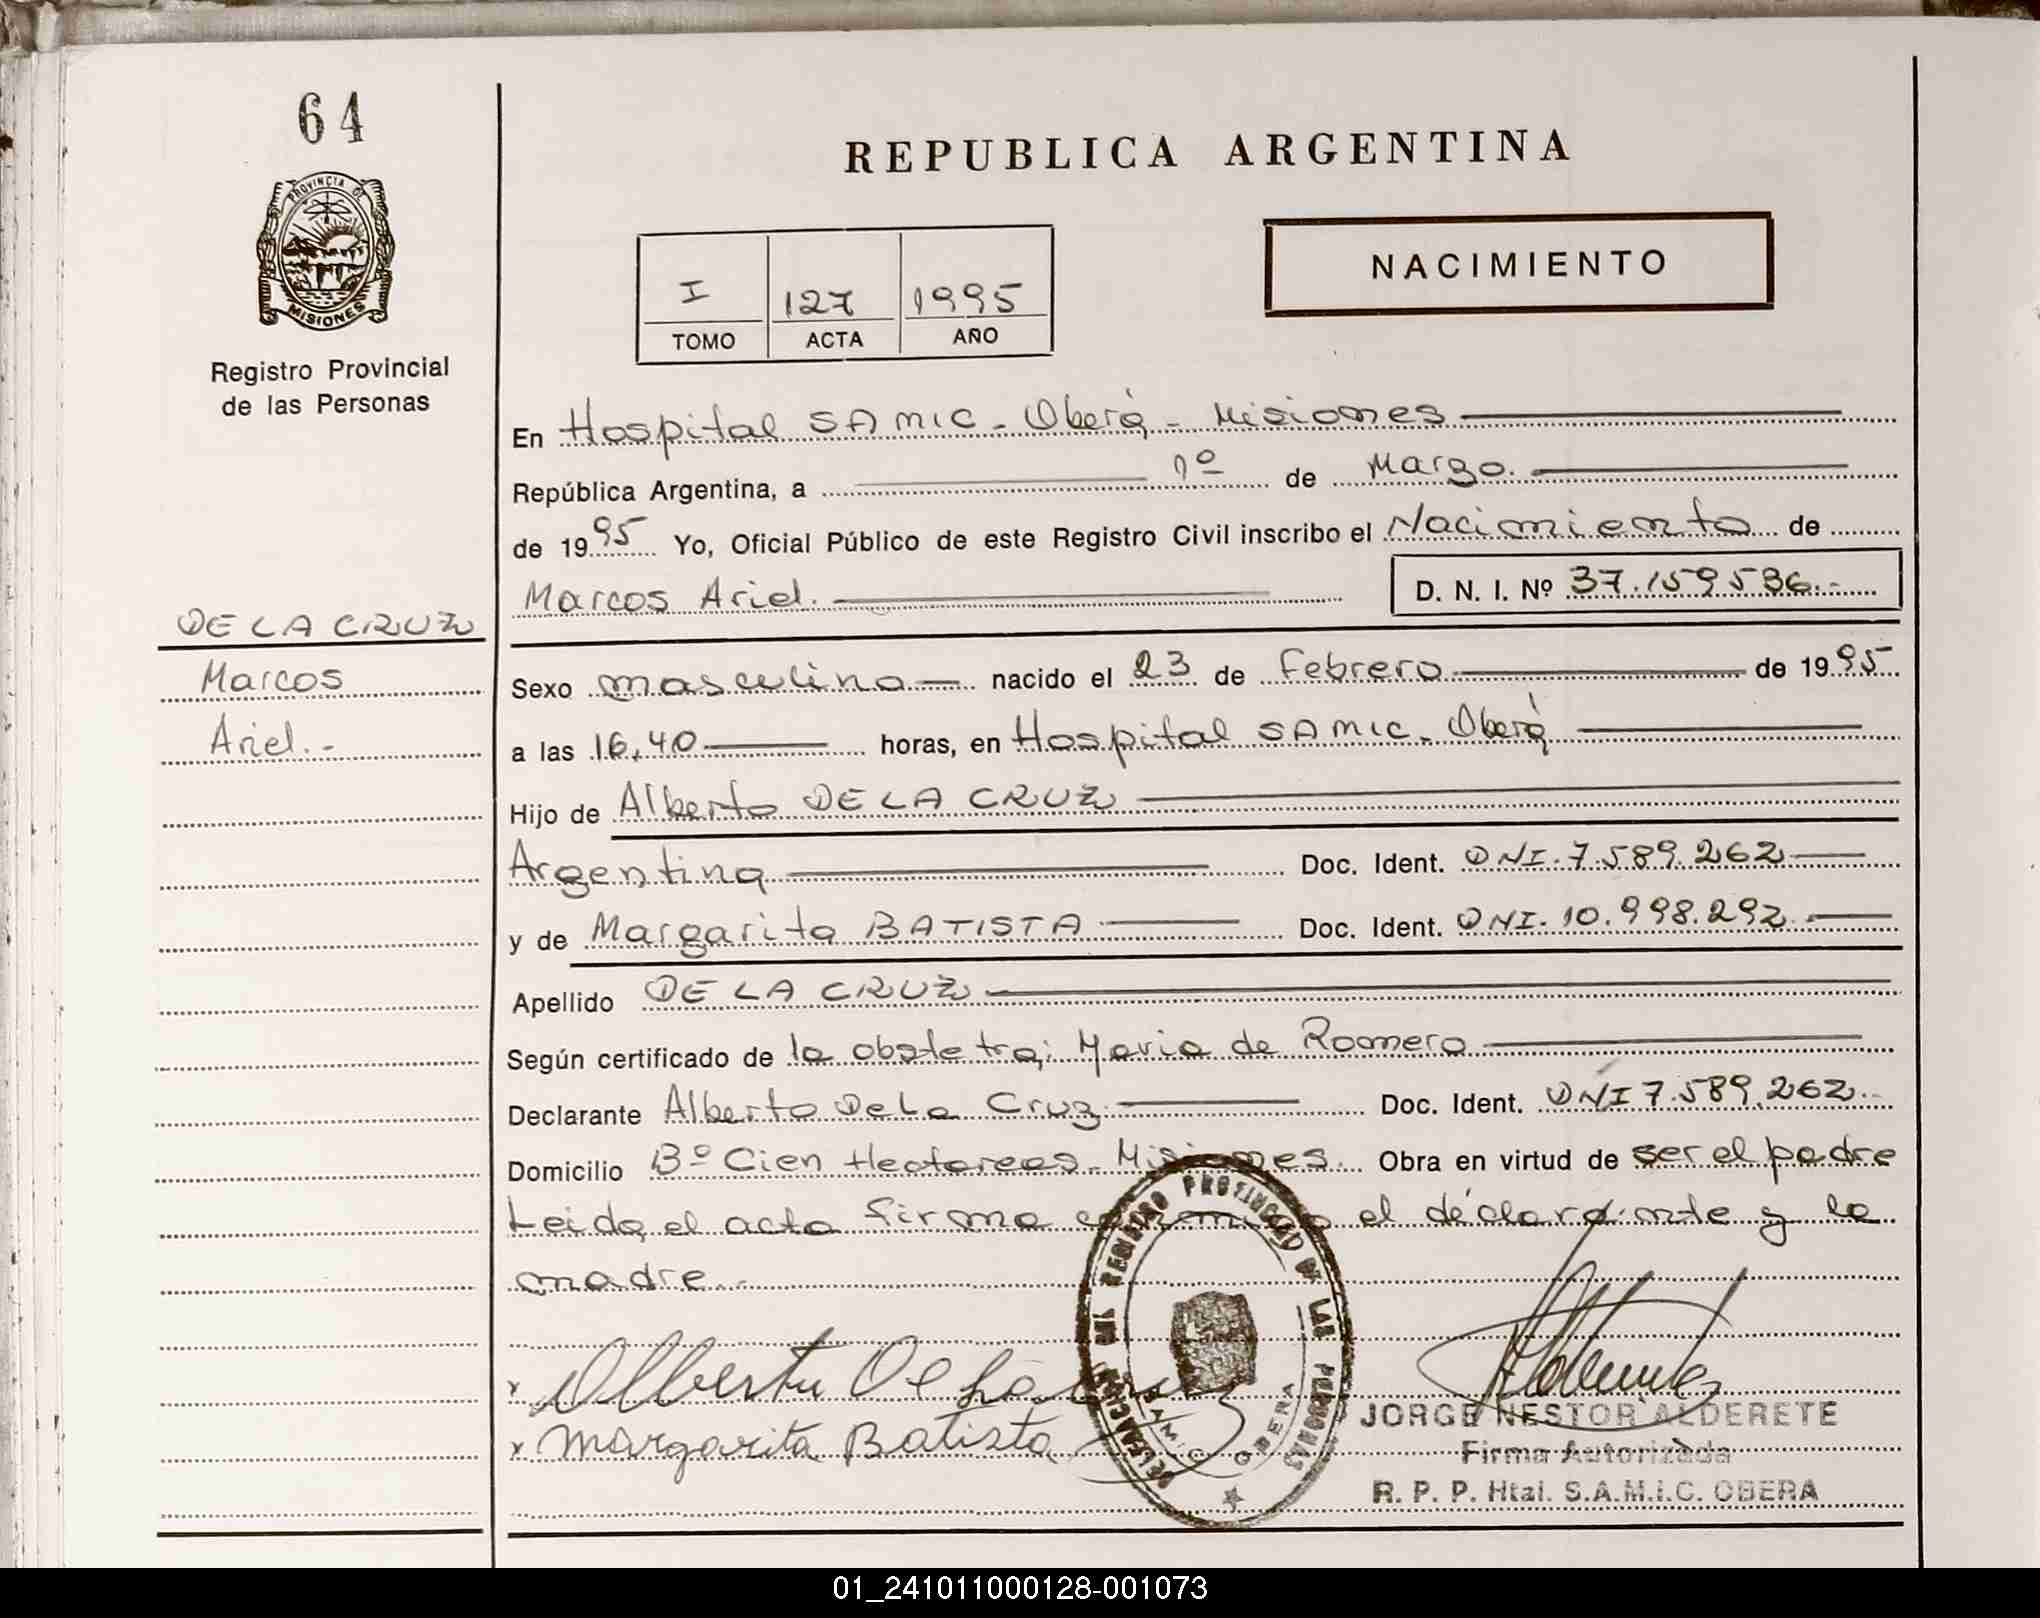 64
PROVINCIA DE
MISIONES
Registro Provincial
de las Personas
DE LA CRUZ
Marcos
Ariel.-
REPUBLICA ARGENTINA
I 127 1995
TOMO ACTA AÑO
NACIMIENTO
En Hospital SAMIC - Oberá - Misiones
República Argentina, a 1º de Marzo.
de 1995 Yo, Oficial Público de este Registro Civil inscribo el Nacimiento de
Marcos Ariel. D. N. I. Nº 37.159.536.-
Sexo masculino nacido el 23 de Febrero de 1995
a las 16,40 horas, en Hospital SAMIC - Oberá
Hijo de Alberto DE LA CRUZ
Argentina Doc. Ident. DNI. 7.589.262
y de Margarita BATISTA Doc. Ident. DNI. 10.998.292.
Apellido DE LA CRUZ
Según certificado de la obstetra; Maria de Romero
Declarante Alberto De La Cruz Doc. Ident. DNI 7.589.262.-
Domicilio Bº Cien Hectareas - Misiones. Obra en virtud de ser el padre
Leida el acta firma conmigo el declarante y la
madre.-
x Alberto De La Cruz
x Margarita Batista
DELEGACION DEL REGISTRO PROVINCIAL DE LAS PERSONAS
SAMIC OBERA
JORGE NESTOR ALDERETE
Firma Autorizada
R. P. P. Htal. S.A.M.I.C. OBERA
01_241011000128-001073